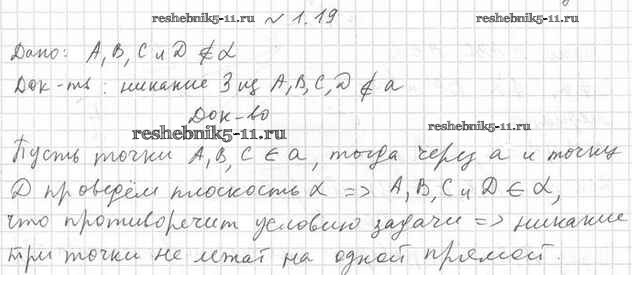 reshebnik5-11.ru
№ 1.19
reshebnik5-11.ru
Дано: A, B, C и D ∉ α
Док-ть: никакие 3 из A, B, C, D ∉ a
Док-во
reshebnik5-11.ru
reshebnik5-11.ru
Пусть точки A, B, C ∈ a, тогда через a и точку
D проведём плоскость α => A, B, C и D ∈ α,
что противоречит условию задачи => никакие
три точки не лежат на одной прямой.